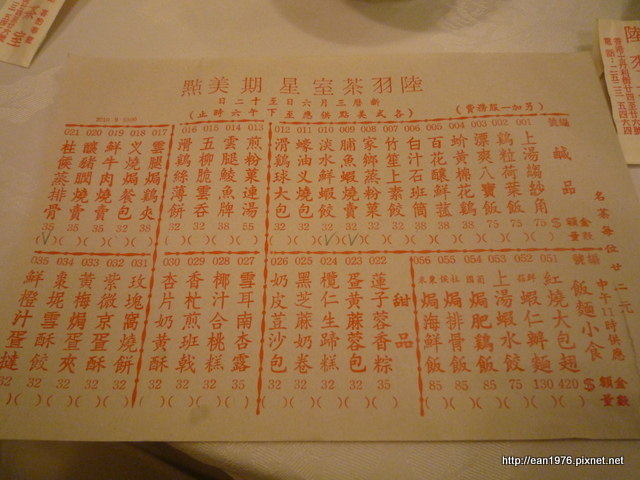 陸羽茶室星期美點
新曆三月六日至十二日
（各式美點供應至下午六時止）
（另加一服務費）
編號 鹹品 $ 金額 數量
名茶每位廿二元
001 上湯 75
002 鷄粒荷葉飯 75
003 漂爽八寶飯
004 蚧黃棉花鷄 38
005 百花釀鮮菰 38
006 白汁石班 38
007 竹笙上素餃 32
008 家鄉蒸粉菜 32
009 脯魚蝦燒賣 32 (V)
010 淡水鮮蝦餃 32 (V)
011 蠔油叉燒包 32
012 滑鷄球大包 32
013 煎粉菓連湯 55
014 雲腿鯪魚牌 38
015 五柳脆雲吞 38
016 滑鷄絲薄餅 32
017 雲腿焗鷄夾 38
018 叉燒焗餐包 32
019 鮮牛肉燒賣 32
020 釀豬膶燒賣 35
021 桂候蒸排骨 35 (V)
編號 飯麵小食 $ 金額 數量
中午11時供應
051 紅燒大包翅 420
052 蝦仁辦麵 130
053 上湯蝦水餃 75
054 葡國焗肥鷄飯 85
055 焗排骨飯 85
056 焗海鮮飯 85
甜品
022 蓮子蓉香粽 35
023 蛋黃蔴蓉包 32
024 欖仁生蹄糕 32
025 黑芝蔴奶卷 32
026 奶皮荳沙包 32
027 雪耳南杏露 35
028 椰汁合桃糕 32
029 香杧煎班戟 35
030 杏片奶黃酥 32
031 玫瑰窩燒餅 32
032 紫微京蛋酥 32
033 黃梅焗蛋夾 32
034 棗坭雪酥餃 32
035 鮮橙汁蛋撻 32
http://ean1976.pixnet.net